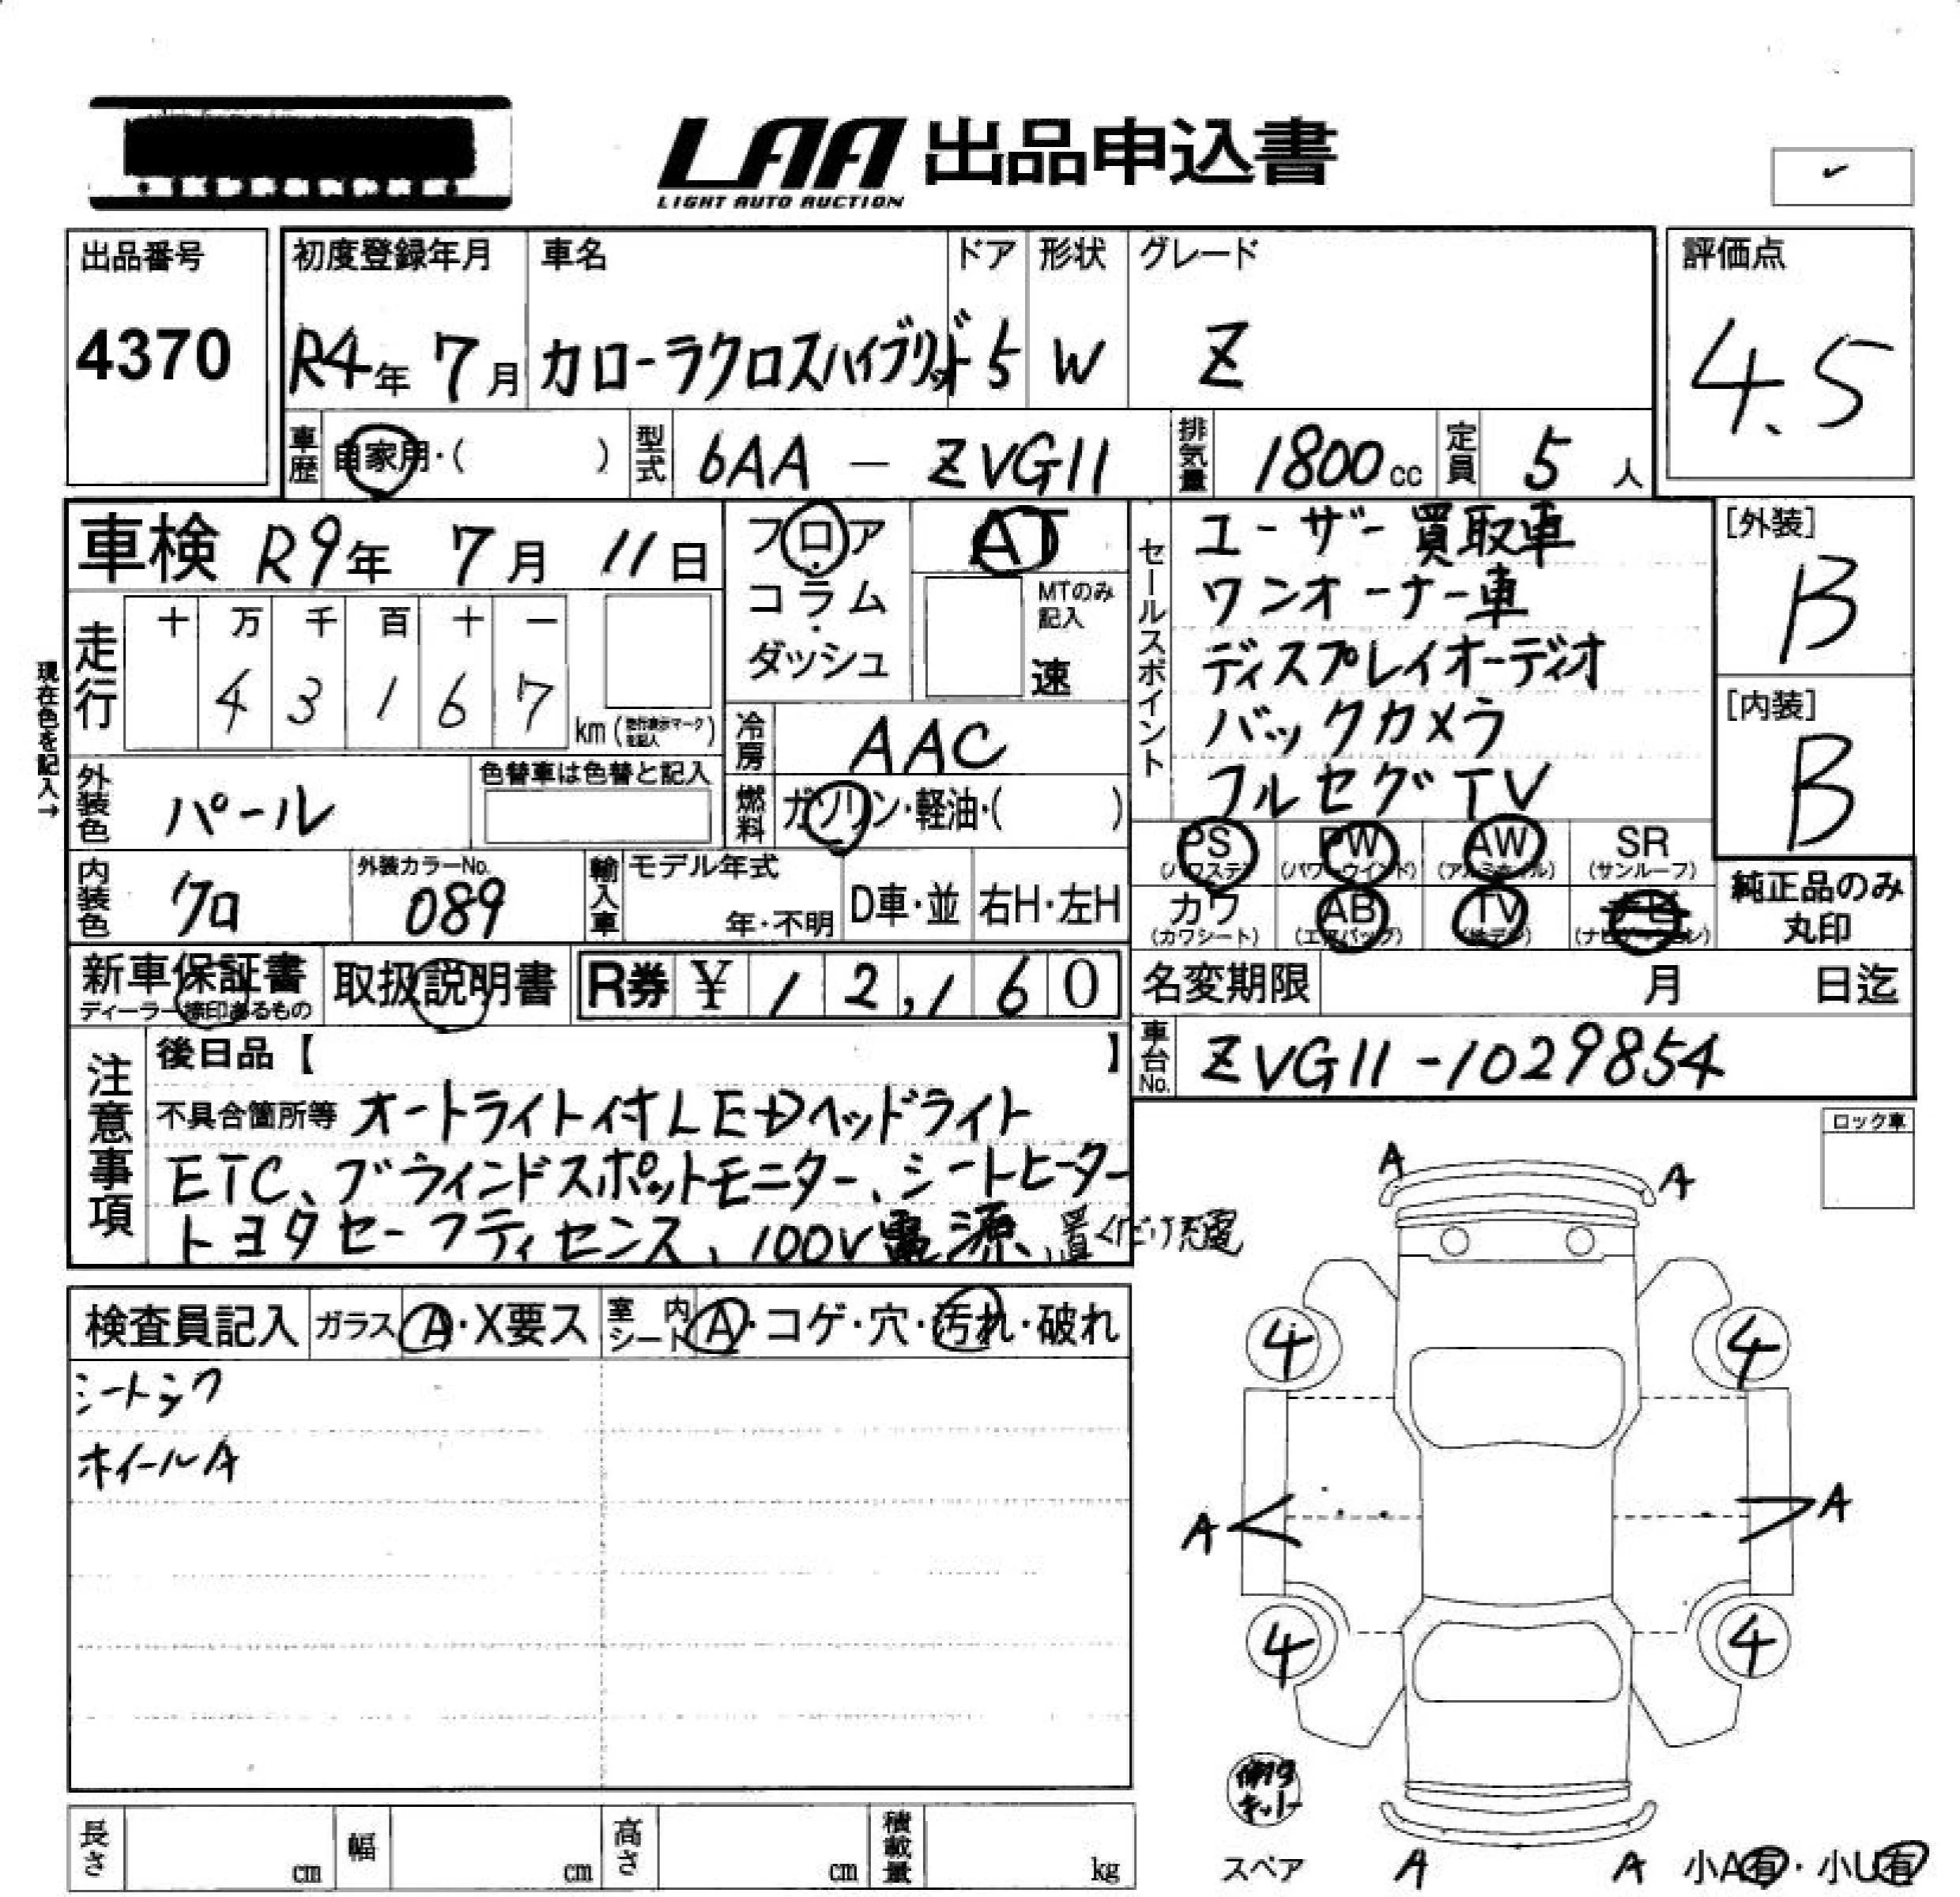 LAA 出品申込書
LIGHT AUTO AUCTION
出品番号
4370
初度登録年月 車名 ドア 形状 グレード
R4年 7月 カローラクロスハイブリッド 5 W Z
評価点
4.5
車歴 自家用・( ) 型式 6AA - ZVG11 排気量 1800cc 定員 5人
車検 R9年 7月 11日
フロア・コラム・ダッシュ
AT
MTのみ記入
速
セールスポイント
ユーザー買取車
ワンオーナー車
ディスプレイオーディオ
バックカメラ
フルセグTV
[外装]
B
[内装]
B
現在色を記入→
走行 十 万 千 百 十 一
4 3 1 6 7 km
冷房 AAC
外装色 パール 色替車は色替と記入
燃料 ガソリン・軽油・( )
PS PW AW SR
(パワステ) (パワーウインド) (アルミホイル) (サンルーフ)
カワ AB TV
(カワシート) (エアバッグ) (地デジ) (ナビゲーション)
純正品のみ
丸印
内装色 クロ 外装カラーNo. 089 輸入車 モデル年式 年・不明 D車・並 右H・左H
新車保証書 取扱説明書 R券 ¥ 12,160
ディーラー捺印あるもの
名変期限 月 日迄
車台No. ZVG11-1029854
注意事項
後日品【 】
不具合箇所等 オートライト付LEDヘッドライト
ETC、ブラインドスポットモニター、シートヒーター
トヨタセーフティセンス、100V電源、置くだけ充電
ロック車
検査員記入 ガラス A・X要ス 室内シート A・コゲ・穴・汚れ・破れ
シートシワ
ホイールA
A A
4 4
A A
4 4
修理キット
スペア A A 小A有・小U有
長さ cm 幅 cm 高さ cm 積載量 kg